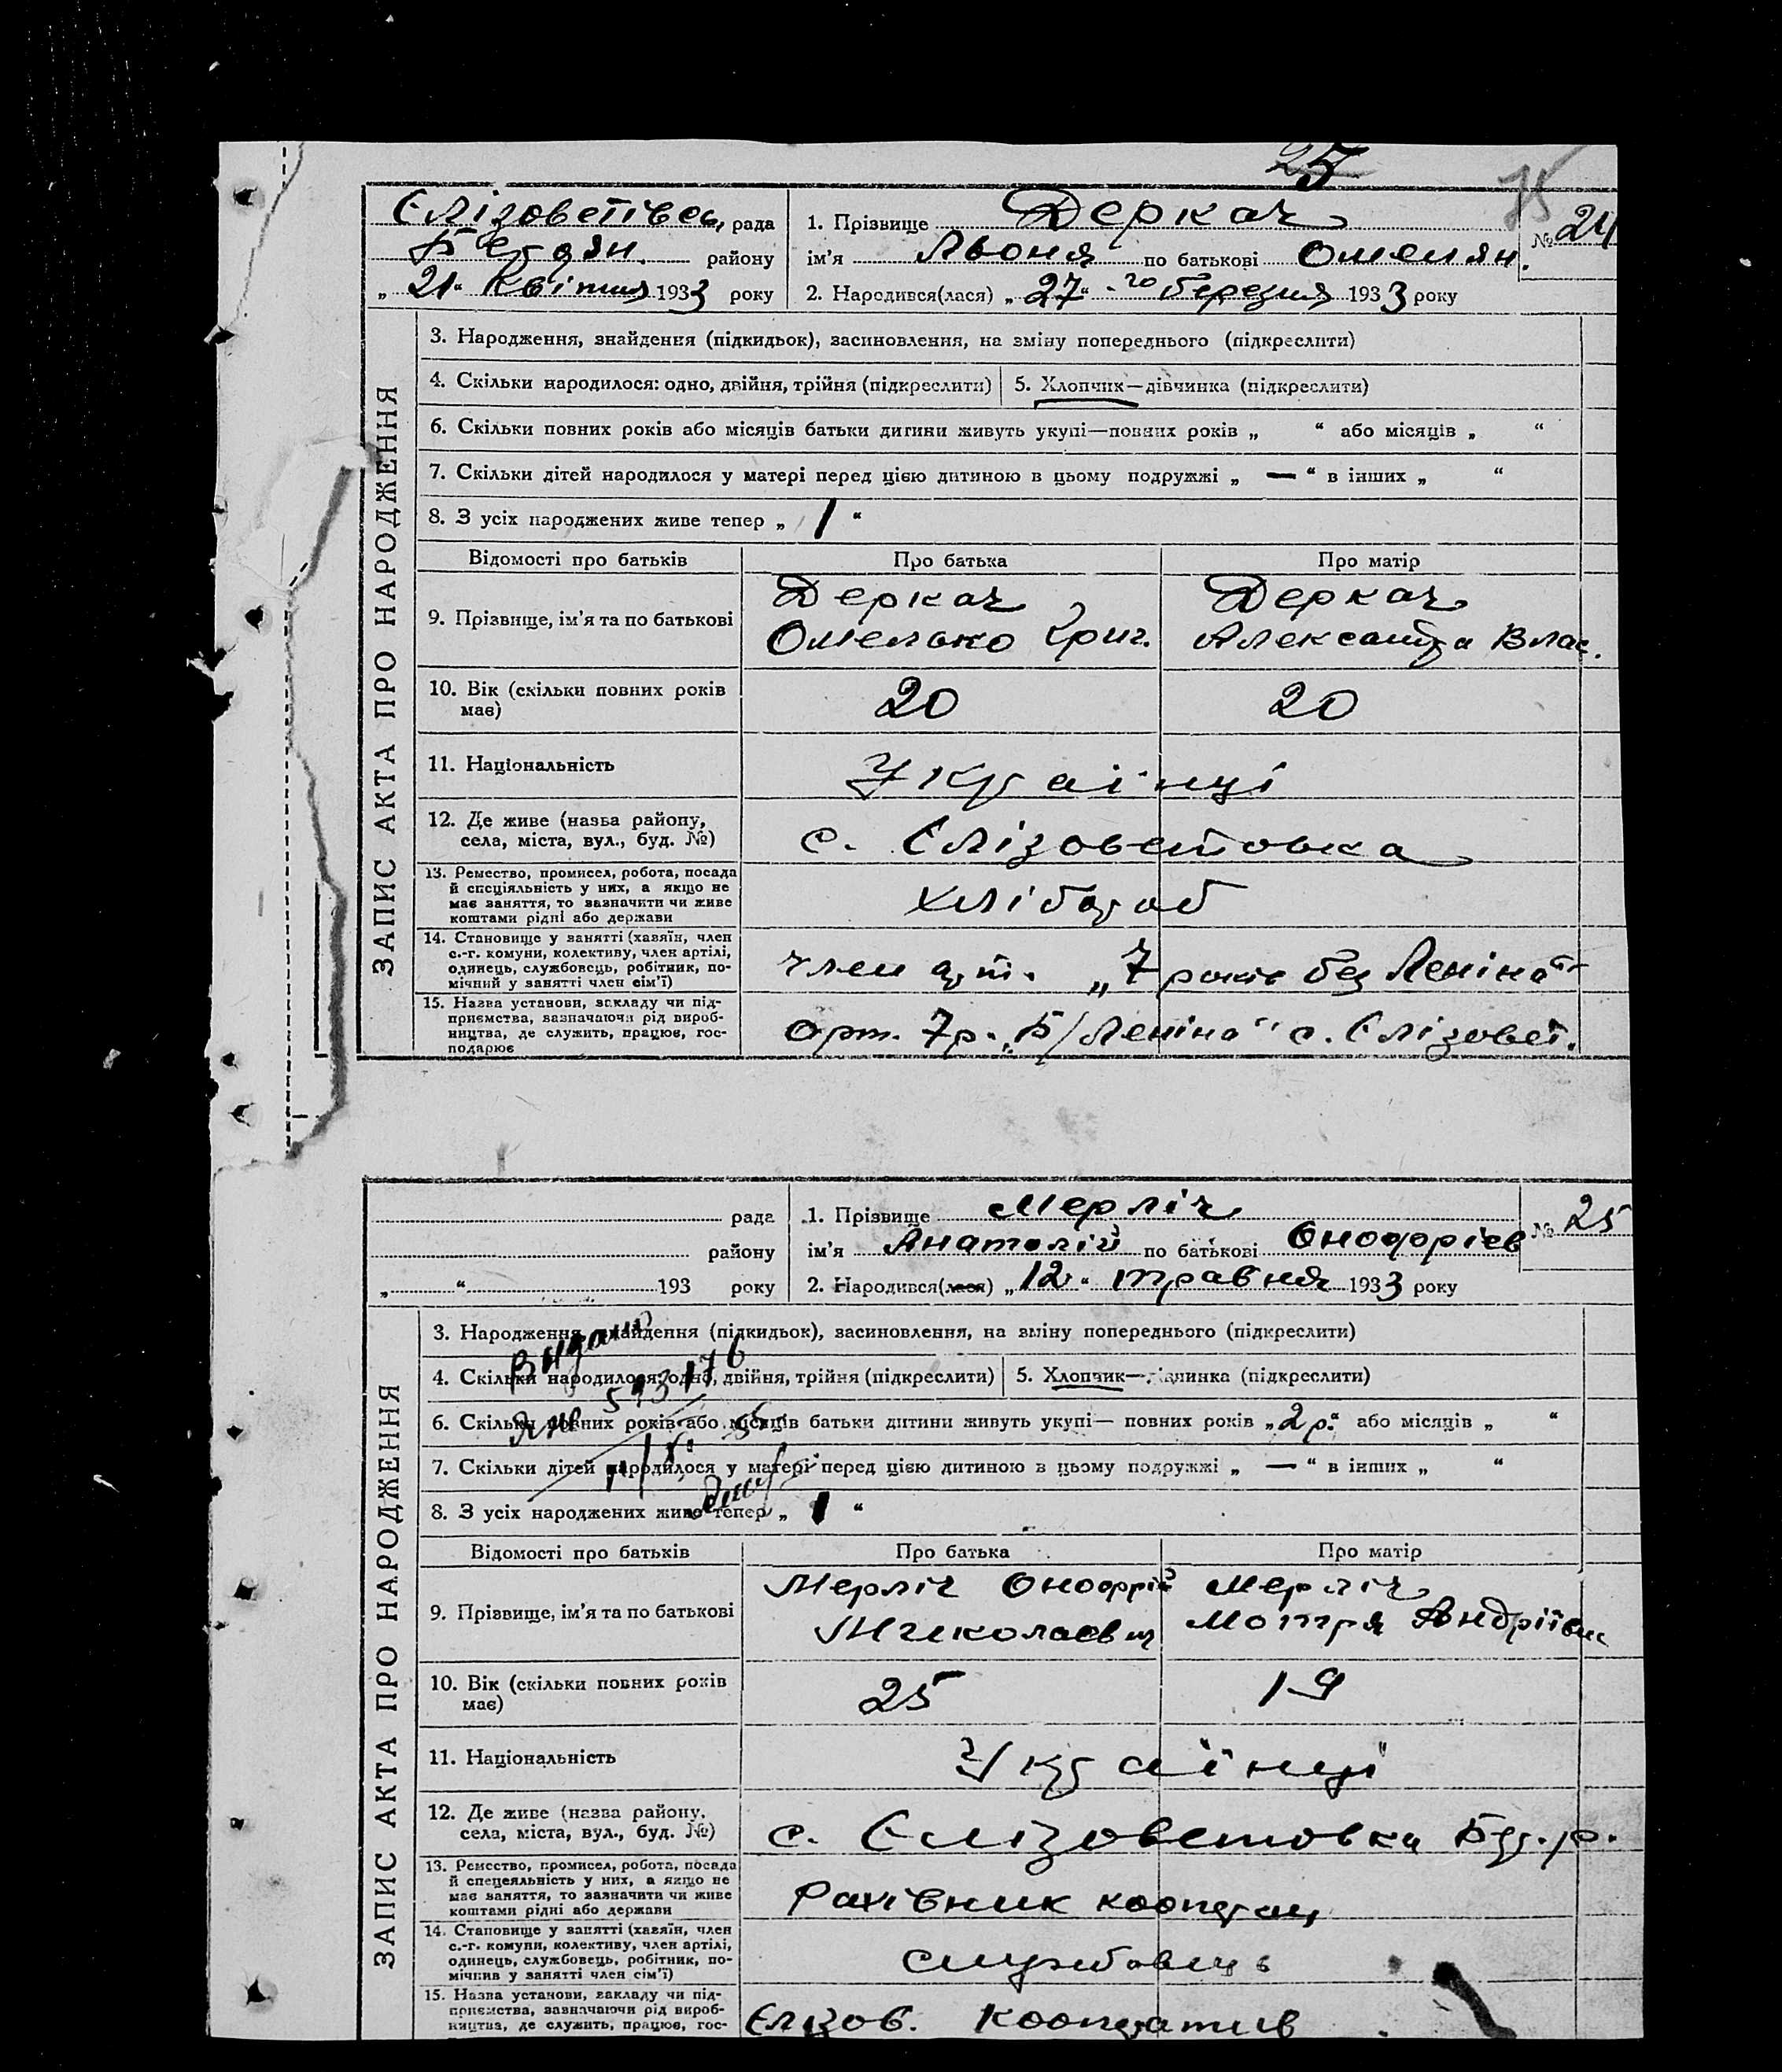 25
75
Єлізоветівсь, рада
Бердян. району
„ 21 “ Квітня 1933 року
1. Прізвище Деркач
№ 24
ім’я Льоня по батькові Омелян.
2. Народився(лася) „ 27 “ -го березня 1933 року
ЗАПИС АКТА ПРО НАРОДЖЕННЯ
3. Народження, знайдення (підкидьок), засиновлення, на зміну попереднього (підкреслити)
4. Скільки народилося: одно, двійня, трійня (підкреслити)
5. Хлопчик—дівчинка (підкреслити)
6. Скільки повних років або місяців батьки дитини живуть укупі—повних років „ “ або місяців „ “
7. Скільки дітей народилося у матері перед цією дитиною в цьому подружжі „ — “ в інших „ “
8. З усіх народжених живе тепер „ 1 “
Відомості про батьків Про батька Про матір
9. Прізвище, ім’я та по батькові
Деркач
Омелько Григ.
Деркач
Александра Влас.
10. Вік (скільки повних років
має)
20 20
11. Національність
Украінці
12. Де живе (назва району,
села, міста, вул., буд. №)
с. Єлізоветовка
13. Ремество, промисел, робота, посада
й спеціяльність у них, а якщо не
має заняття, то зазначити чи живе
коштами рідні або держави
хлібороб
14. Становище у занятті (хазяїн, член
с.-г. комуни, колективу, член артілі,
одинець, службовець, робітник, по-
мічний у занятті член сім’ї)
член арт. „7 років без Леніна“
15. Назва установи, закладу чи під-
приємства, зазначаючи рід вироб-
ництва, де служить, працює, гос-
подарює
орт. 7р. „Б/Леніна“ с. Єлізовет.
рада
району
„ “ 193 року
1. Прізвище Мерліч
№ 25
ім’я Анатолій по батькові Онофріев
2. Народився(лася) „ 12 “ травня 1933 року
ЗАПИС АКТА ПРО НАРОДЖЕННЯ
3. Народження, знайдення (підкидьок), засиновлення, на зміну попереднього (підкреслити)
Видано
4. Скільки народилося: одно, двійня, трійня (підкреслити)
5. Хлопчик—дівчинка (підкреслити)
6. Скільки повних років або місяців батьки дитини живуть укупі— повних років „ 2 р. “ або місяців „ “
7. Скільки дітей народилося у матері перед цією дитиною в цьому подружжі „ — “ в інших „ “
8. З усіх народжених живе тепер „ 1 “
Відомості про батьків Про батька Про матір
9. Прізвище, ім’я та по батькові
Мерліч Онофрій
Миколаєвич
Мерліч
Мотря Андріївн
10. Вік (скільки повних років
має)
25 19
11. Національність
Українці
12. Де живе (назва району,
села, міста, вул., буд. №)
с. Єлізоветовка Бер. р.
13. Ремество, промисел, робота, посада
й спецеяльність у них, а якщо не
має заняття, то зазначити чи живе
коштами рідні або держави
Рахівник коопрац
14. Становище у занятті (хазяїн, член
с.-г. комуни, колективу, член артілі,
одинець, службовець, робітник, по-
мічнив у занятті член сім’ї)
службовець
15. Назва установи, закладу чи під-
приємства, зазначаючи рід вироб-
ництва, де служить, працює, гос-
Єлізов. Кооператив